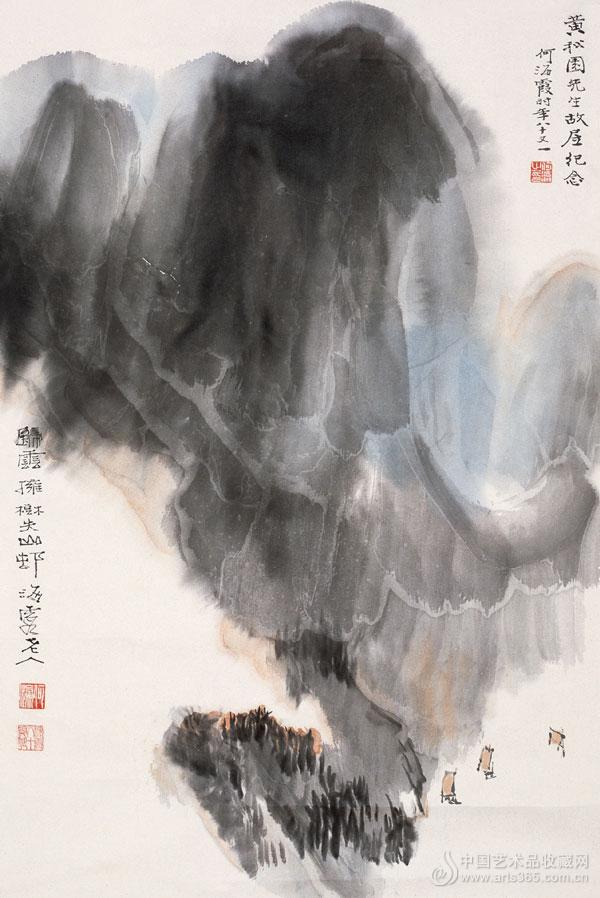 黄秋园先生故居纪念
何海霞时年八十又一
归云拥树失山邨
海霞老人
中国艺术品收藏网
www.arts365.com.cn